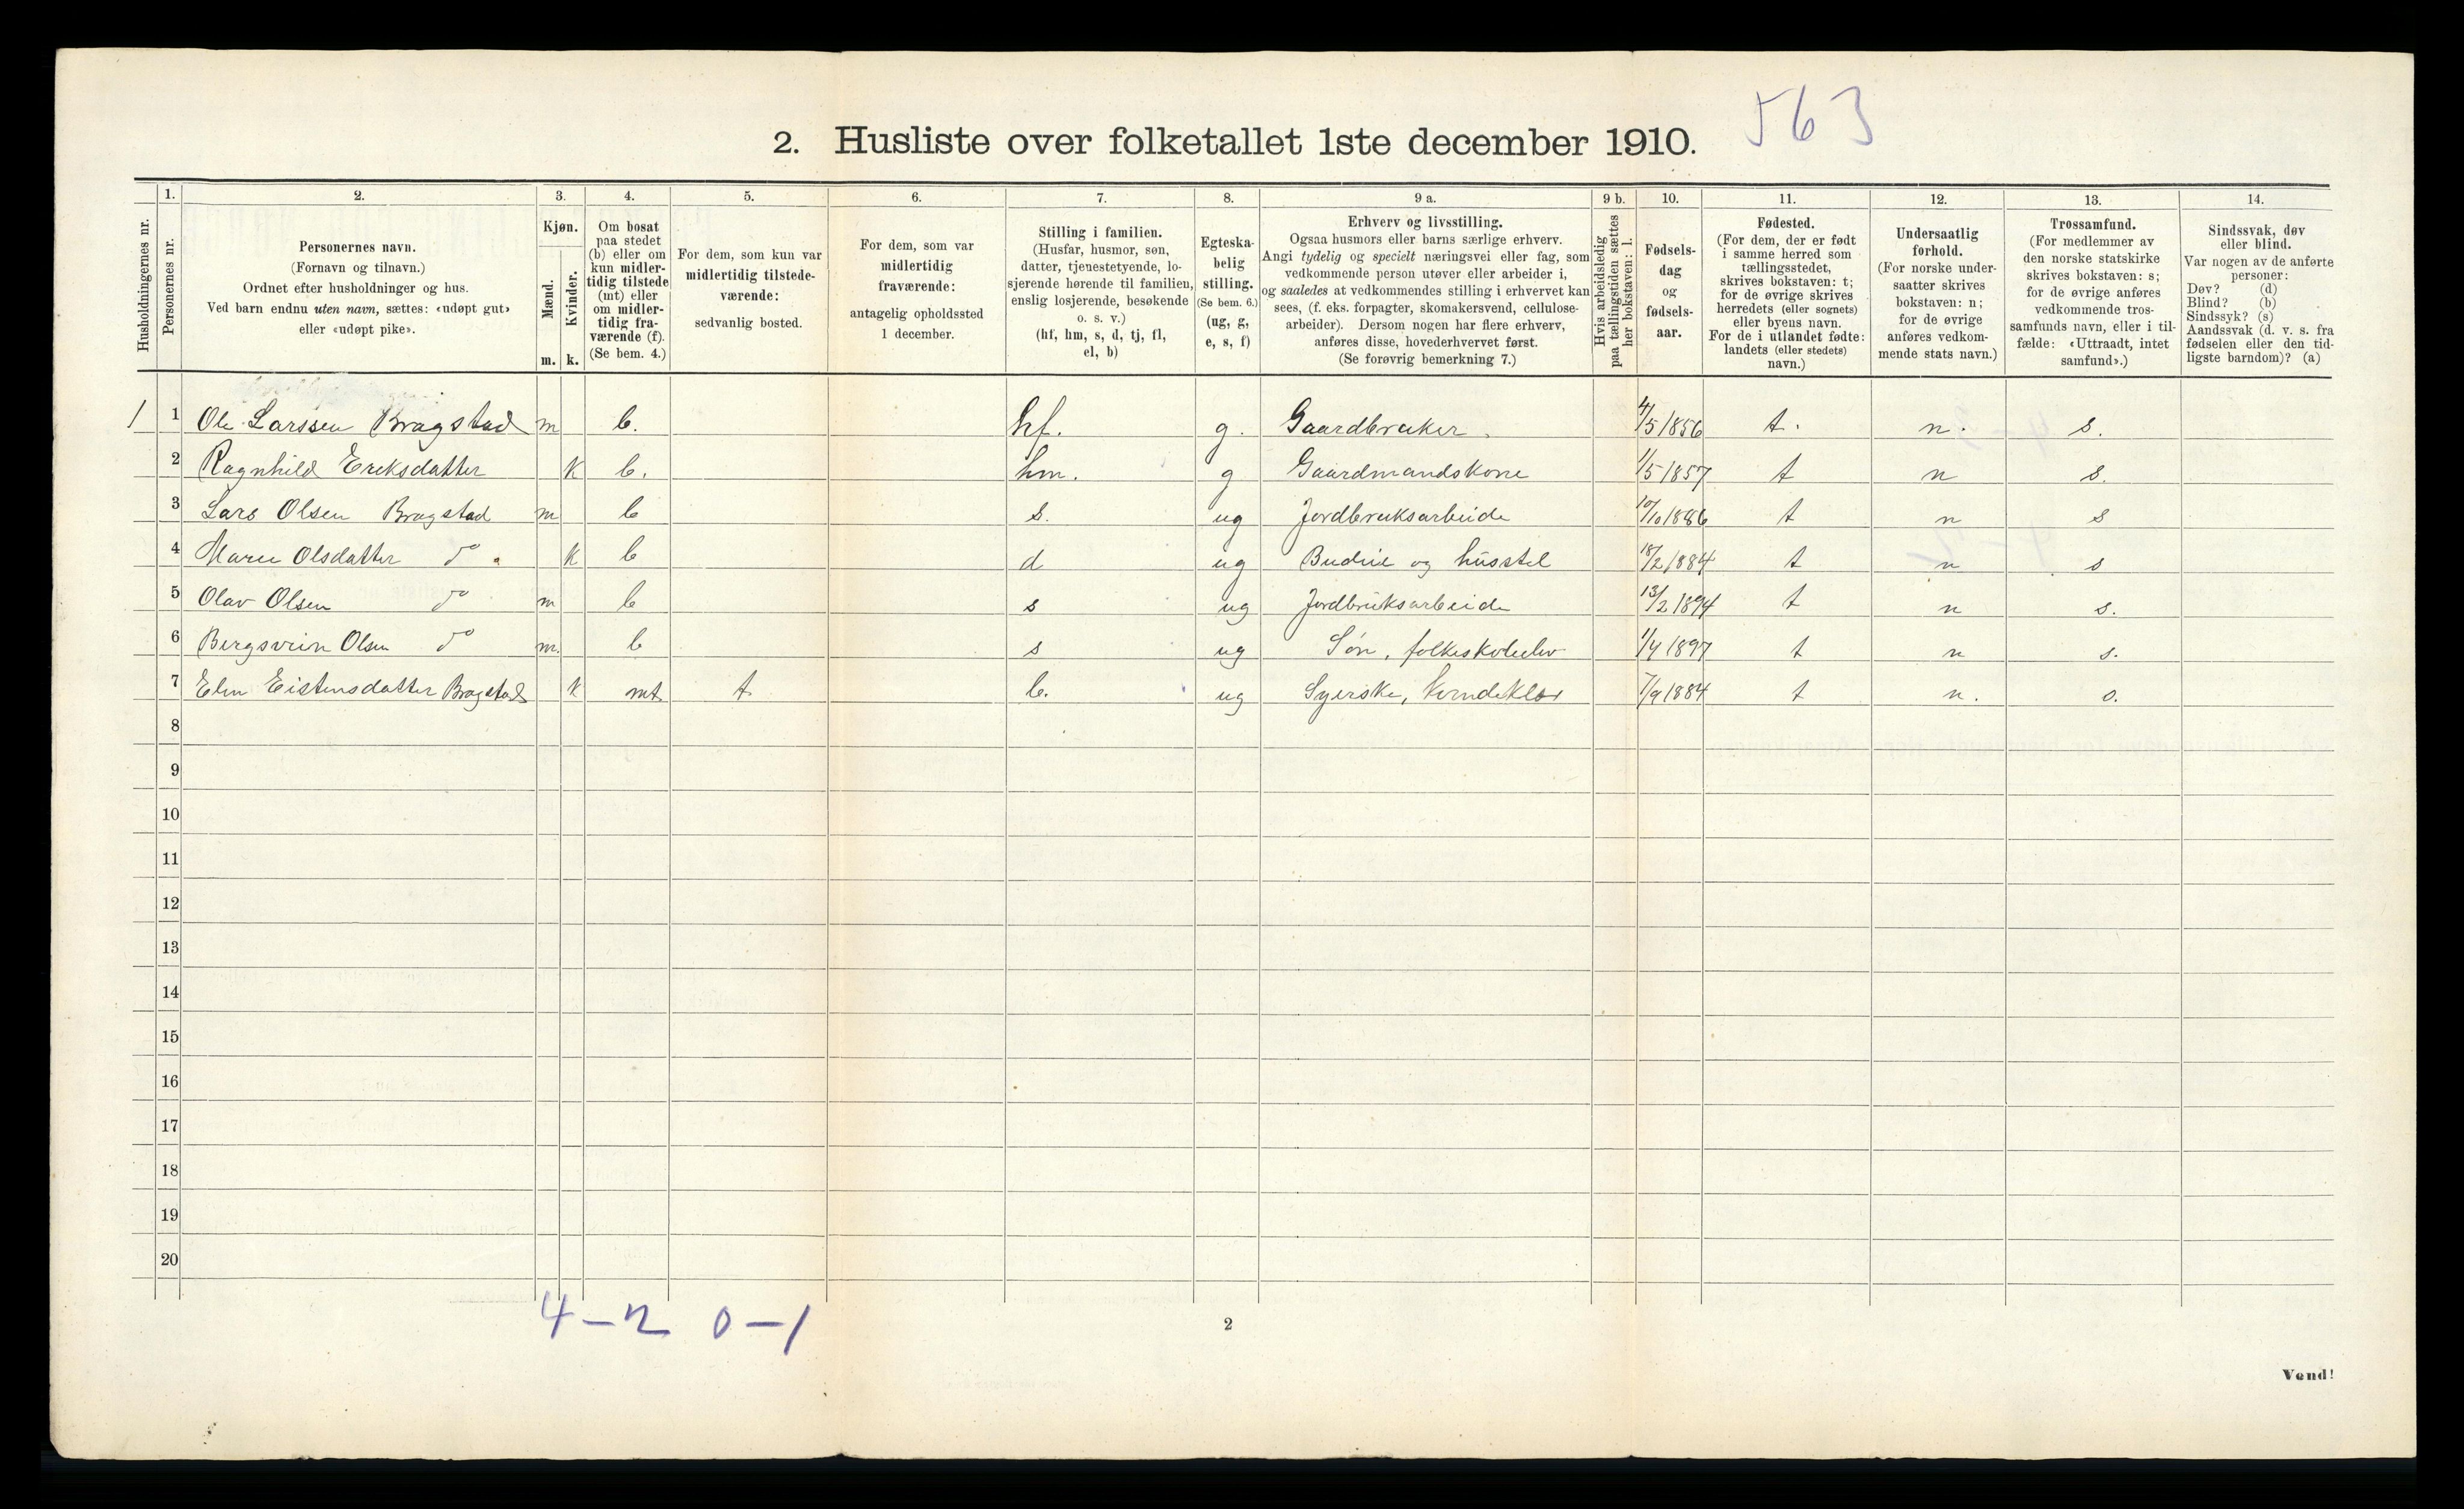 563
2. Husliste over folketallet 1ste december 1910.
Husholdningernes nr.
1.
Personernes nr.
2.
Personernes navn.
(Fornavn og tilnavn.)
Ordnet efter husholdninger og hus.
Ved barn endnu uten navn, sættes: «udøpt gut»
eller «udøpt pike».
3.
Kjøn.
Mænd.
m.
Kvinder.
k.
4.
Om bosat
paa stedet
(b) eller om
kun midler-
tidig tilstede
(mt) eller
om midler-
tidig fra-
værende (f).
(Se bem. 4.)
5.
For dem, som kun var
midlertidig tilstede-
værende:
sedvanlig bosted.
6.
For dem, som var
midlertidig
fraværende:
antagelig opholdssted
1 december.
7.
Stilling i familien.
(Husfar, husmor, søn,
datter, tjenestetyende, lo-
sjerende hørende til familien,
enslig losjerende, besøkende
o. s. v.)
(hf, hm, s, d, tj, fl,
el, b)
8.
Egteska-
belig
stilling.
(Se bem. 6.)
(ug, g,
e, s, f)
9 a.
Erhverv og livsstilling.
Ogsaa husmors eller barns særlige erhverv.
Angi tydelig og specielt næringsvei eller fag, som
vedkommende person utøver eller arbeider i,
og saaledes at vedkommendes stilling i erhvervet kan
sees, (f. eks. forpagter, skomakersvend, cellulose-
arbeider). Dersom nogen har flere erhverv,
anføres disse, hovederhvervet først.
(Se forøvrig bemerkning 7.)
9 b.
Hvis arbeidsledig
paa tællingstiden sættes
her bokstaven: l.
10.
Fødsels-
dag
og
fødsels-
aar.
11.
Fødested.
(For dem, der er født
i samme herred som
tællingsstedet,
skrives bokstaven: t;
for de øvrige skrives
herredets (eller sognets)
eller byens navn.
For de i utlandet fødte:
landets (eller stedets)
navn.)
12.
Undersaatlig
forhold.
(For norske under-
saatter skrives
bokstaven: n;
for de øvrige
anføres vedkom-
mende stats navn.)
13.
Trossamfund.
(For medlemmer av
den norske statskirke
skrives bokstaven: s;
for de øvrige anføres
vedkommende tros-
samfunds navn, eller i til-
fælde: «Uttraadt, intet
samfund».)
14.
Sindssvak, døv
eller blind.
Var nogen av de anførte
personer:
Døv? (d)
Blind? (b)
Sindssyk? (s)
Aandssvak (d. v. s. fra
fødselen eller den tid-
ligste barndom)? (a)
1 1 Ole Larssen Bragstad m b. hf. g. Gaardbruker. 4/5 1856 t. n. s.
2 Ragnhild Ereksdatter k b. hm. g Gaardmandskone 1/5 1857 t n s.
3 Lars Olsen Bragstad m b s. ug Jordbruksarbeide 10/10 1886 t n s
4 Maren Olsdatter do k b d ug Budeie og husstel 18/2 1884 t n s
5 Olav Olsen do m b s ug Jordbruksarbeide 13/2 1894 t n s.
6 Bergsvein Olsen do m. b s ug Søn, folkeskoleelev 1/4 1897 t n s.
7 Elen Eistensdatter Bragstad k mt t b. ug Syerske, kvindeklær 7/9 1884 t n. s.
8
9
10
11
12
13
14
15
16
17
18
19
20
4 - 2 0 - 1
2
Vend!